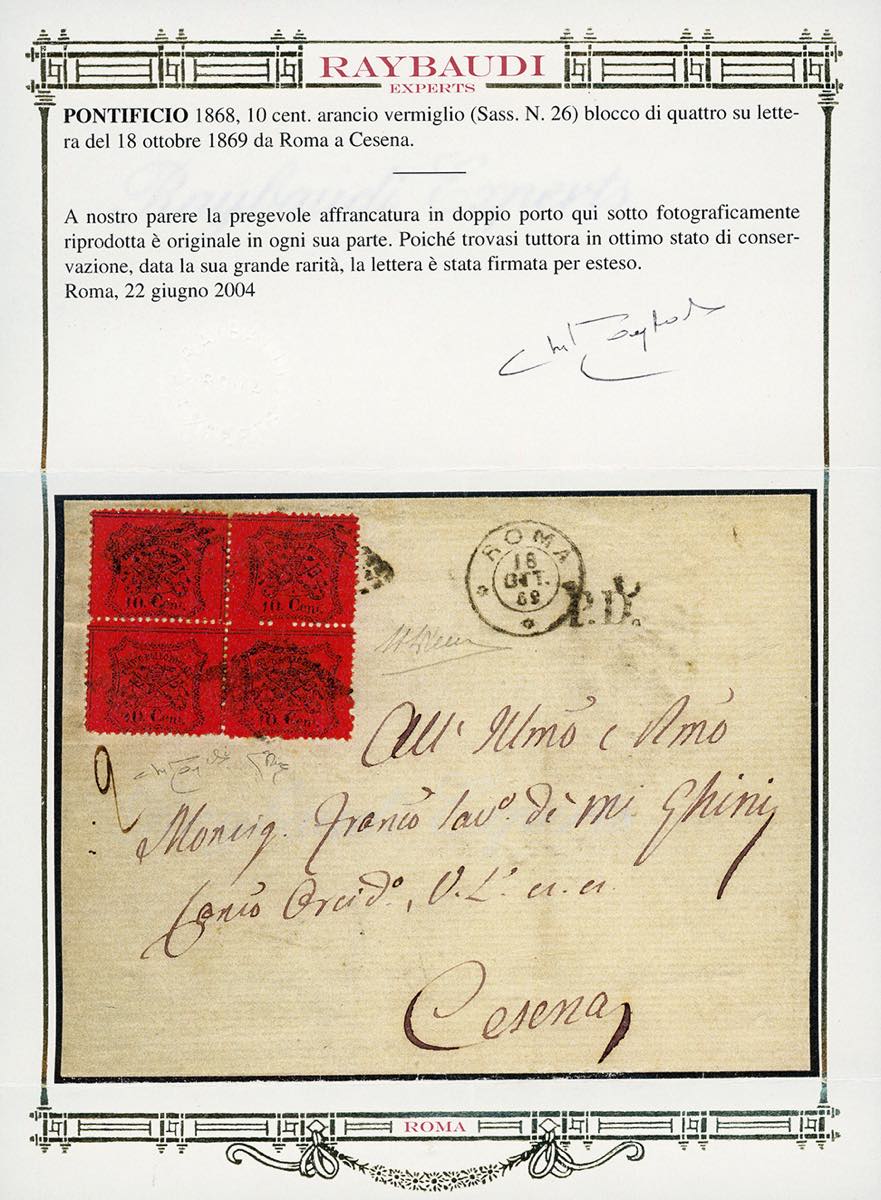 RAYBAUDI
EXPERTS
PONTIFICIO 1868, 10 cent. arancio vermiglio (Sass. N. 26) blocco di quattro su lette-
ra del 18 ottobre 1869 da Roma a Cesena.
A nostro parere la pregevole affrancatura in doppio porto qui sotto fotograficamente
riprodotta è originale in ogni sua parte. Poiché trovasi tuttora in ottimo stato di conser-
vazione, data la sua grande rarità, la lettera è stata firmata per esteso.
Roma, 22 giugno 2004
10. Cent. 10. Cent.
10. Cent. 10. Cent.
ROMA
18
OTT.
69
P.D.
All' Illmo e Rmo
Monsig. Franco Sav.o de' Mi Ghini
Canco Arcid.o,
Cesena
2
ROMA